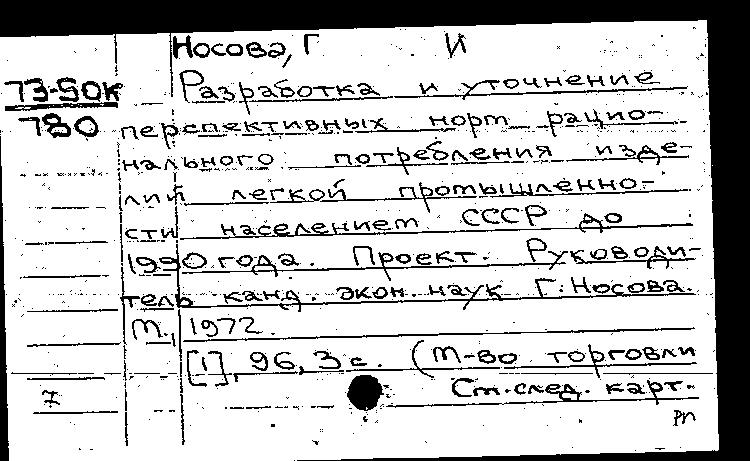 Носова, Г И
73-50к Разработка и уточнение
780 перспективных норм рацио-
нального потребления изде-
лий легкой промышленно-
сти населением СССР до
1990 года. Проект. Руководи-
тель канд. экон. наук Г. Носова.
М., 1972.
[1], 96, 3 с. (М-во торговли
7 См. след. карт.
рп